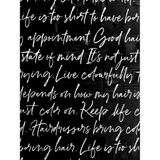 Life is too short to have bor
appointment. Good hai
state of mind It's not just
Live colourfully
depends on how my hair i
ust color on. Keep life c
Hairdressers bring color
oring hair. Life is too sh